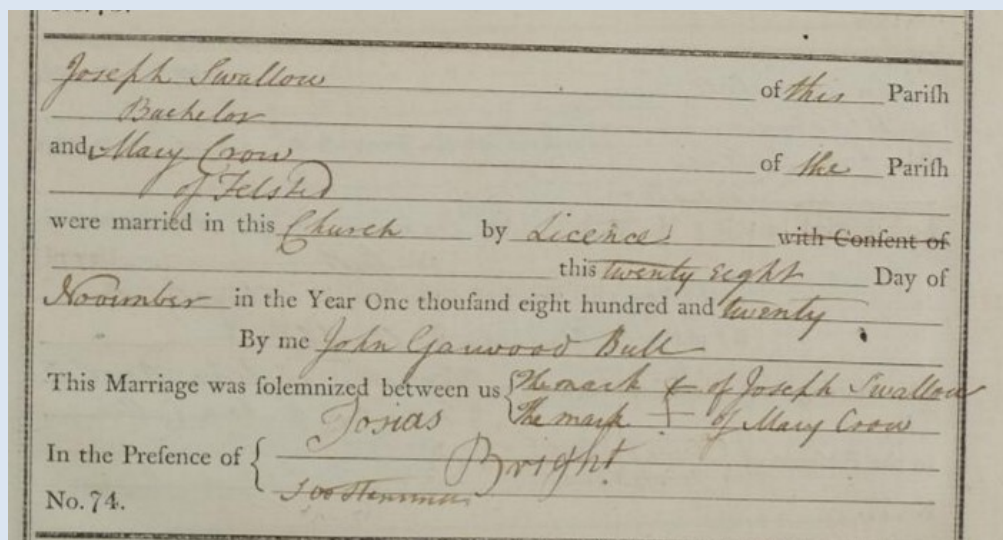 Joseph Swallow of this Pariſh
Bachelor
and Mary Crow of the Pariſh
of Felsted
were married in this Church by Licence with Conſent of
this twenty eight Day of
November in the Year One thouſand eight hundred and twenty
By me John Garwood Bull
This Marriage was ſolemnized between us The mark + of Joseph Swallow
Josias The mark + of Mary Crow
In the Preſence of { Bright
No. 74.